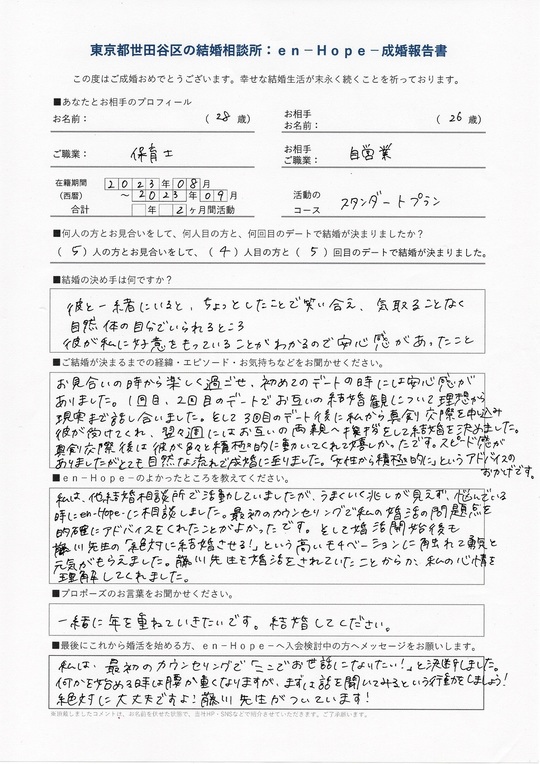 東京都世田谷区の結婚相談所：en－Hope－成婚報告書
この度はご成婚おめでとうございます。幸せな結婚生活が末永く続くことを祈っております。
■あなたとお相手のプロフィール
お名前： （ 28 歳） お相手お名前： （ 26 歳）
ご職業： 保育士 お相手ご職業： 自営業
在籍期間（西暦） 2023年08月
～2023年09月
合計 年 2ヶ月間活動
活動のコース スタンダートプラン
■何人の方とお見合いをして、何人目の方と、何回目のデートで結婚が決まりましたか？
（ 5 ）人の方とお見合いをして、（ 4 ）人目の方と（ 5 ）回目のデートで結婚が決まりました。
■結婚の決め手は何ですか？
彼と一緒にいると、ちょっとしたことで笑い合え、気取ることなく
自然体の自分でいられるところ
彼が私に好意をもっていることがわかるので安心感があったこと
■ご結婚が決まるまでの経緯・エピソード・お気持ちなどをお聞かせください。
お見合いの時から楽しく過ごせ、初めてのデートの時には安心感が
ありました。1回目、2回目のデートでお互いの結婚観について理想から
現実まで話し合いました。そして3回目のデート後に私から真剣交際を申込み
彼が受けてくれ、翌々週にはお互いの両親へ挨拶をして結婚を決めました。
真剣交際後は彼が色々と積極的に動いてくれて嬉しかったです。スピード感が
ありましたがとても自然な流れで成婚に至りました。「女性から積極的に」というアドバイスの
おかげです。
■en－Hope－のよかったところを教えてください。
私は、他結婚相談所で活動していましたが、うまくいく兆しが見えず、悩んでいる
時にen-Hope-に相談しました。最初のカウンセリングで私の婚活の問題点を
的確にアドバイスをくれたことがよかったです。そして婚活開始後も
藤川先生の「絶対に結婚させる！」という高いモチベーションに触れて勇気と
元気がもらえました。藤川先生も婚活をされていたことからか、私の心情を
理解してくれました。
■プロポーズのお言葉をお聞かせください。
一緒に年を重ねていきたいです。結婚してください。
■最後にこれから婚活を始める方、en－Hope－へ入会検討中の方へメッセージをお願いします。
私は、最初のカウンセリングで「ここでお世話になりたい！」と決断しました。
何かを始める時は腰が重くなりますが、まずは話を聞いてみるという行動をしましょう！
絶対に大丈夫ですよ！藤川先生がついています！
※掲載しましたコメントは、お名前を伏せた状態で、当社HP・SNSなどで紹介させていただきます。ご了承願います。